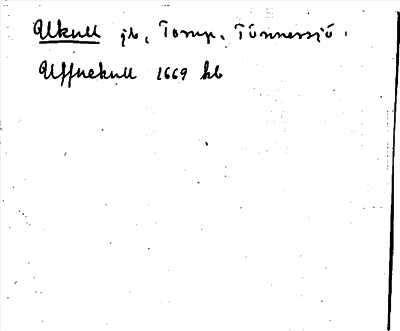 Ukull jb, Torup, Tönnersjö.
Uffuekull 1669 kb